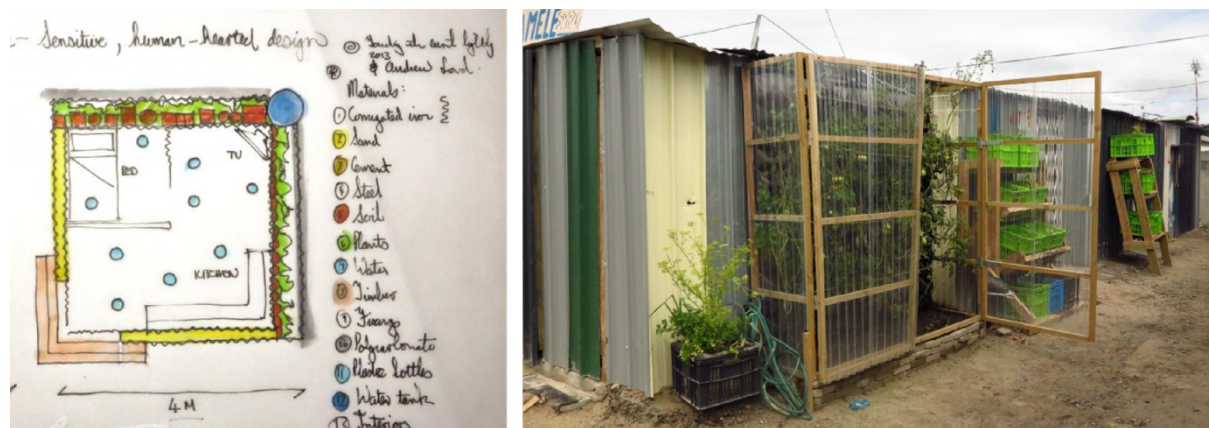 - Sensitive, human-hearted design
2013
& Andrew Lord.
Materials:
① Corrugated iron
② Sand
③ Cement
④ Steel
⑤ Soil
⑥ Plants
⑦ Water
⑧ Timber
⑩ Polycarbonate
⑪ Plastic bottles
⑫ Water tank
⑬ Interior
BED
TV
KITCHEN
4 M
AMELE